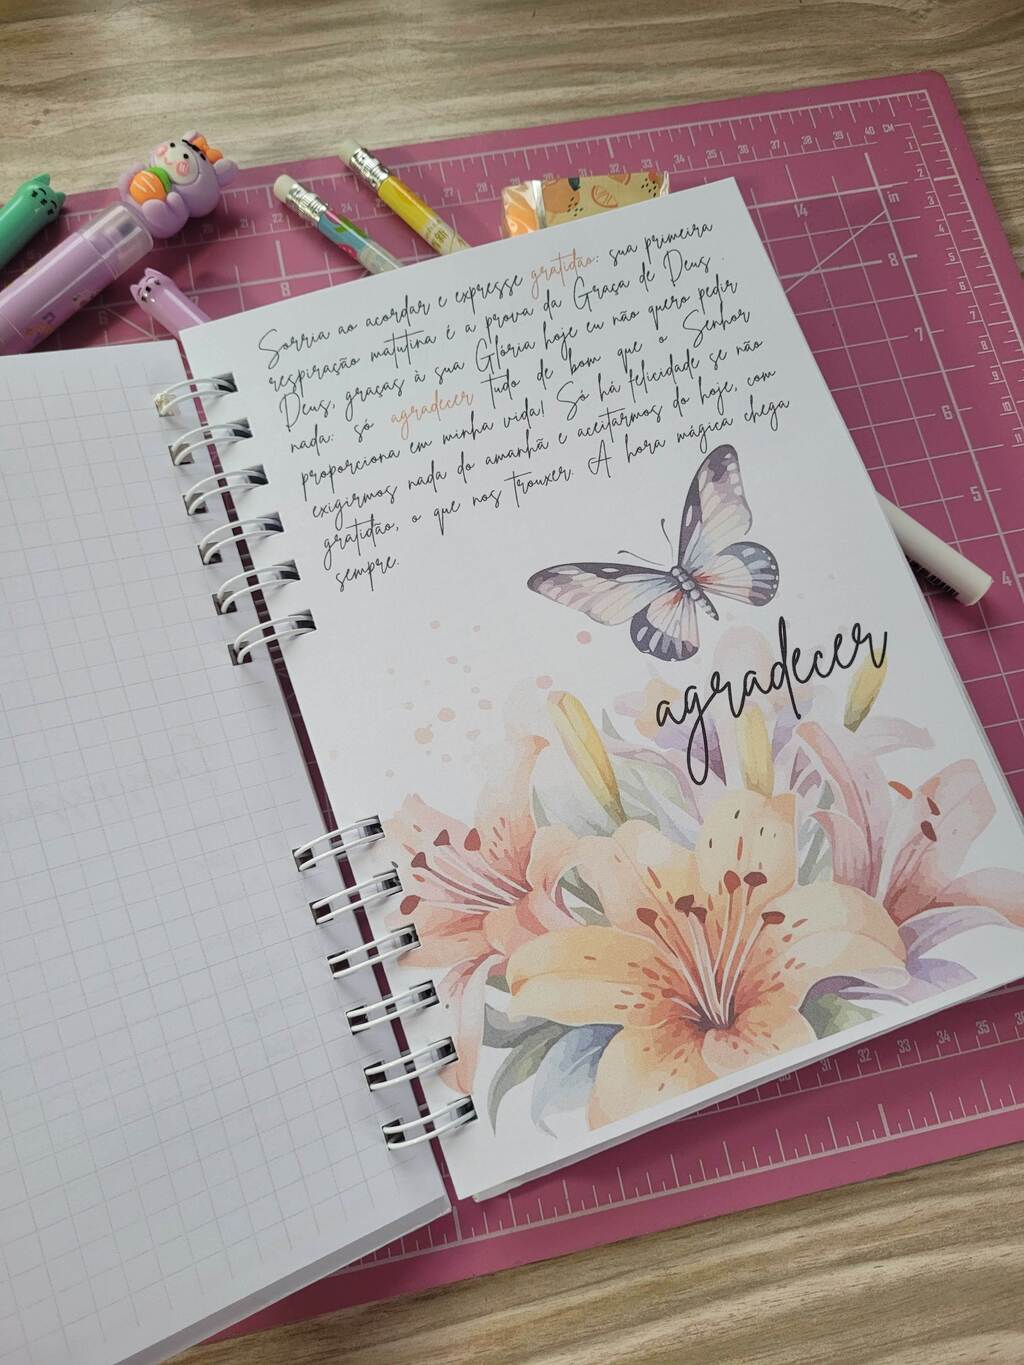 Sorria ao acordar e expresse gratidão: sua primeira
respiração matutina é a prova da Graça de Deus.
Deus, graças à sua Glória hoje eu não quero pedir
nada: só agradecer tudo de bom que o Senhor
proporciona em minha vida! Só há felicidade se não
exigirmos nada do amanhã e aceitarmos do hoje, com
gratidão, o que nos trouxer. A hora mágica chega
sempre.
agradecer
40 CM
14
in
8
8
7
6
5
4
33
34
35